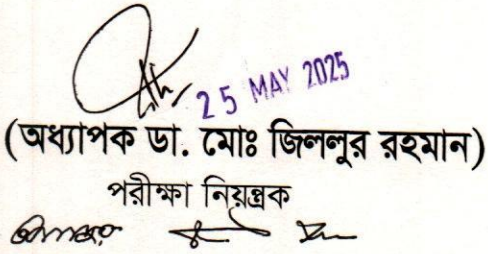 25 MAY 2025
(অধ্যাপক ডা. মোঃ জিললুর রহমান)
পরীক্ষা নিয়ন্ত্রক